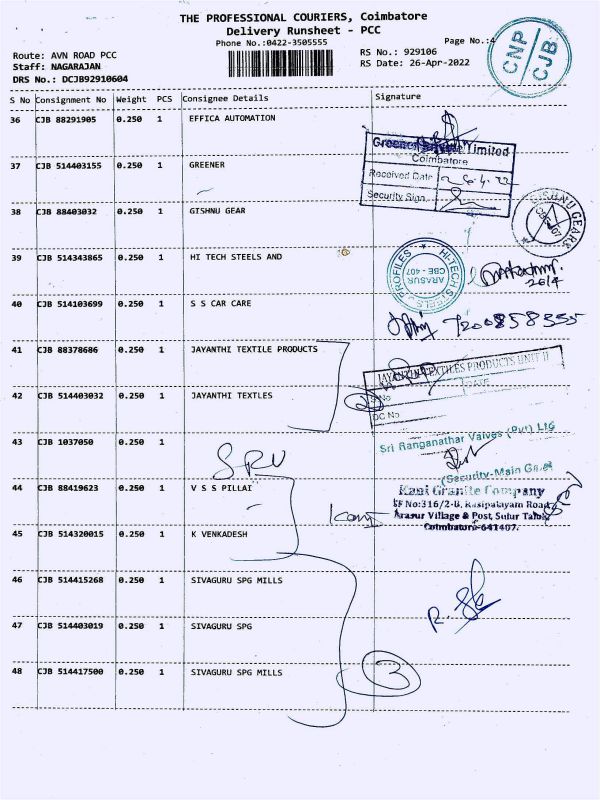 THE PROFESSIONAL COURIERS, Coimbatore
Delivery Runsheet - PCC
Phone No.:0422-3505555
Page No.:4
Route: AVN ROAD PCC
Staff: NAGARAJAN
DRS No.: DCJB92910604
RS No.: 929106
RS Date: 26-Apr-2022
CNP
CJB
S No Consignment No Weight PCS Consignee Details Signature
36 CJB 88291905 0.250 1 EFFICA AUTOMATION
Greener Limited
Coimbatore
Received Date 26.4.22
Security Sign
37 CJB 514403155 0.250 1 GREENER
38 CJB 88403032 0.250 1 GISHNU GEAR
39 CJB 514343865 0.250 1 HI TECH STEELS AND
HI-TECH STEELS PROFILES
ARASUR
CBE - 407
26/4
40 CJB 514103699 0.250 1 S S CAR CARE
7200858355
41 CJB 88378686 0.250 1 JAYANTHI TEXTILE PRODUCTS
JAYANTHI TEXTILES PRODUCTS UNIT II
DATE
S.No
DC No
42 CJB 514403032 0.250 1 JAYANTHI TEXTLES
2
43 CJB 1037050 0.250 1
SRV
Sri Ranganathar Valves (Pvt) Ltd
(Security-Main Gate)
44 CJB 88419623 0.250 1 V S S PILLAI
Kani Granite Company
SF No:316/2-B, Rasipalayam Road
Arasur Village & Post, Sulur Taluk
Coimbatore-641407.
45 CJB 514320015 0.250 1 K VENKADESH
46 CJB 514415268 0.250 1 SIVAGURU SPG MILLS
47 CJB 514403019 0.250 1 SIVAGURU SPG
48 CJB 514417500 0.250 1 SIVAGURU SPG MILLS
3